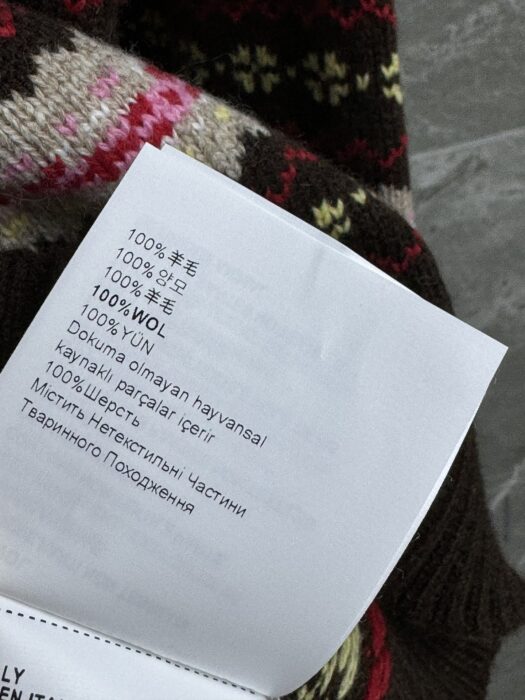 100%羊毛
100%양모
100%羊毛
100%WOL
100%YÜN
Dokuma olmayan hayvansal
kaynaklı parçalar içerir
100%Шерсть
Містить Нетекстильні Частини
Тваринного Походження
LY
EN ITA